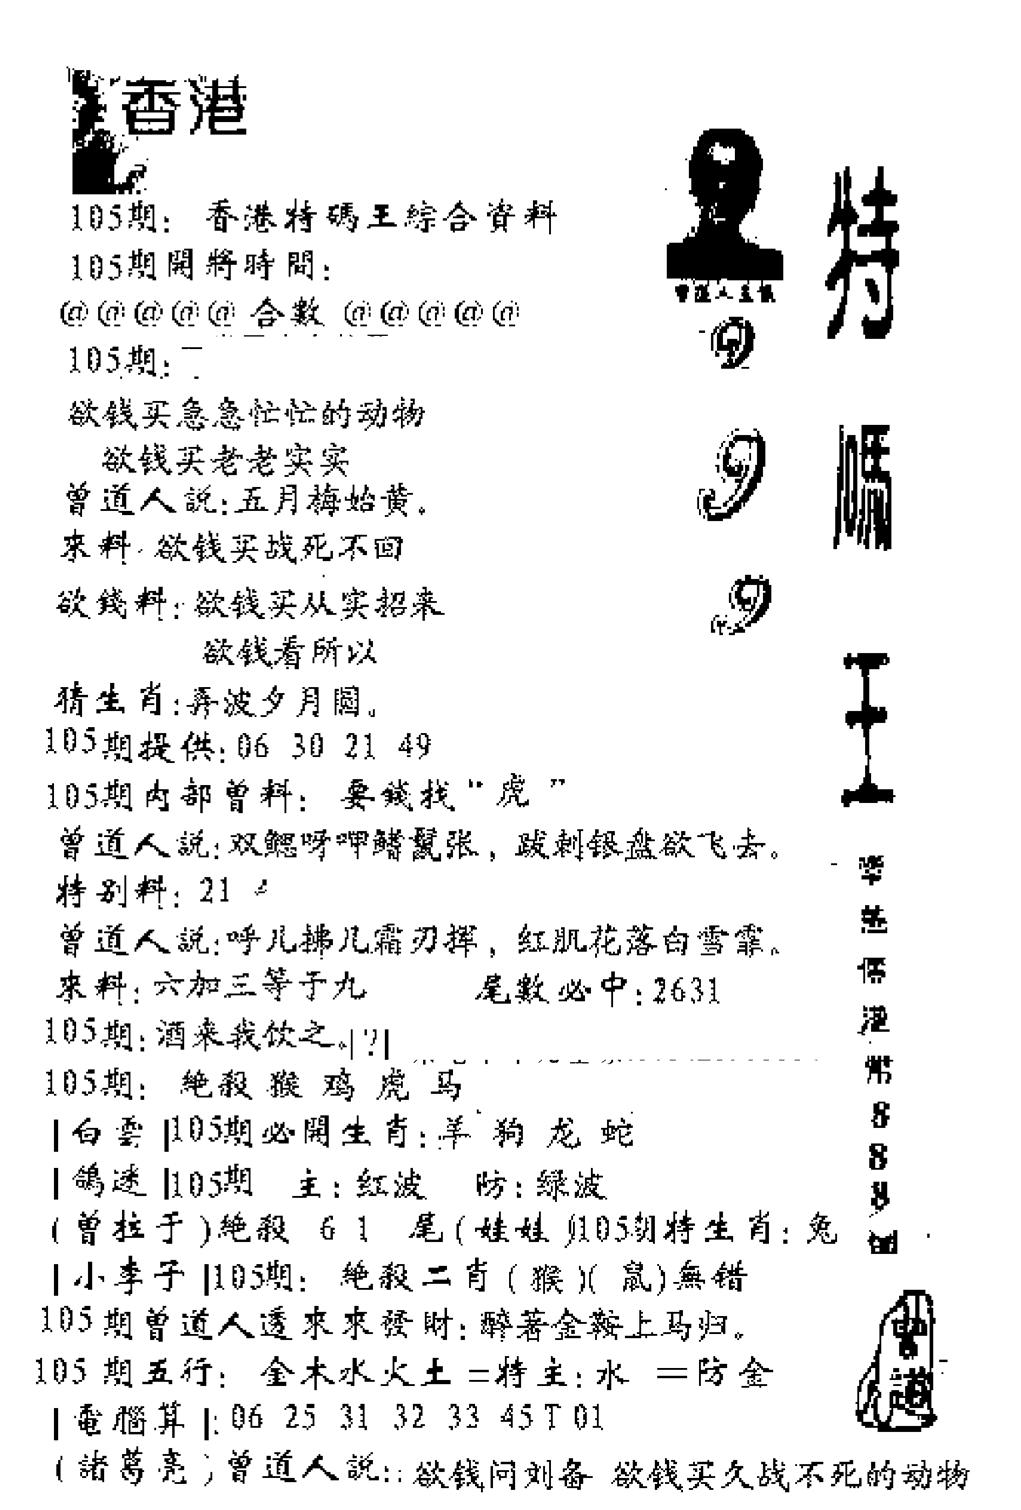 香港
105期: 香港特碼王綜合資料
105期開將時間:
@@@@@ 合數 @@@@@
105期:
欲钱买急急忙忙的动物
欲钱买老老实实
曾道人説:五月梅始黄。
来料 欲钱买战死不回
欲錢料:欲钱买从实招来
欲钱看所以
猜生肖:弄波夕月圆。
105期提供:06 30 21 49
105期内部曾料: 要錢找"虎"
曾道人説:双鳃呀呷鳍鬣张, 跋剌银盘欲飞去。
特别料: 21
曾道人説:呼儿拂几霜刃挥, 红肌花落白雪霏。
来料:六加三等于九 尾數必中:2631
105期:酒来我饮之。|?|
105期: 绝殺 猴 鸡 虎 马
|白雲|105期必開生肖:羊 狗 龙 蛇
|鴿迷|105期 主:红波 防:绿波
(曾拉于)绝殺 6 1 尾(娃娃)105期特生肖: 兔
|小李子|105期: 绝殺二肖(猴)(鼠)無错
105期曾道人透來來發財:醉著金鞍上马归。
105期五行: 金木水火土=特主:水 =防金
|電腦算|:06 25 31 32 33 45T01
(諸葛亮)曾道人説::欲钱问刘备 欲钱买久战不死的动物
曾道人
9
9
9
特
碼
王
港
幣
8
8
8
曾道